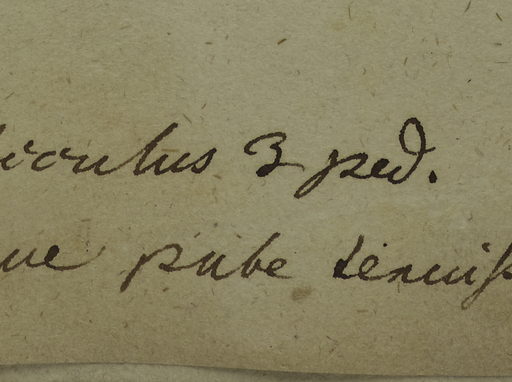 iculus 3 ped.
ue pube tenuiss